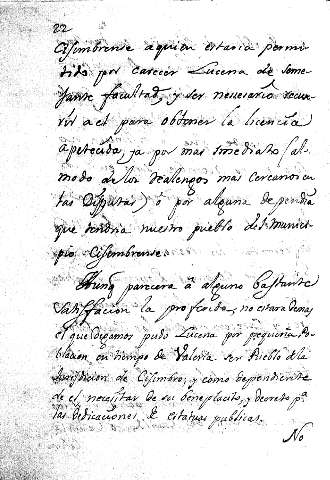 22
Cisimbrense a quien estaria permi
tido por carecer Lucena de seme
jante facultad, y ser necesario recur
rir a el para obtener la licencia
apetecida, ya por mas inmediato (al
modo de los Realengos mas cercanos en
las Disputas) ó por alguna dependa
que tendria nuestro pueblo del munici
pio Cisimbrense.
Aunq parecera á alguno bastante
satisfaccion la proferida, no estara demas
el que digamos pudo Lucena por pequeña Po
blacion en tiempo de Valeria ser Pueblo de la
Jurisdicion de Cisimbro, y como dependiente
de el necesitar de su beneplacito, y decreto pa
las dedicaciones de estatuas publicas.
No